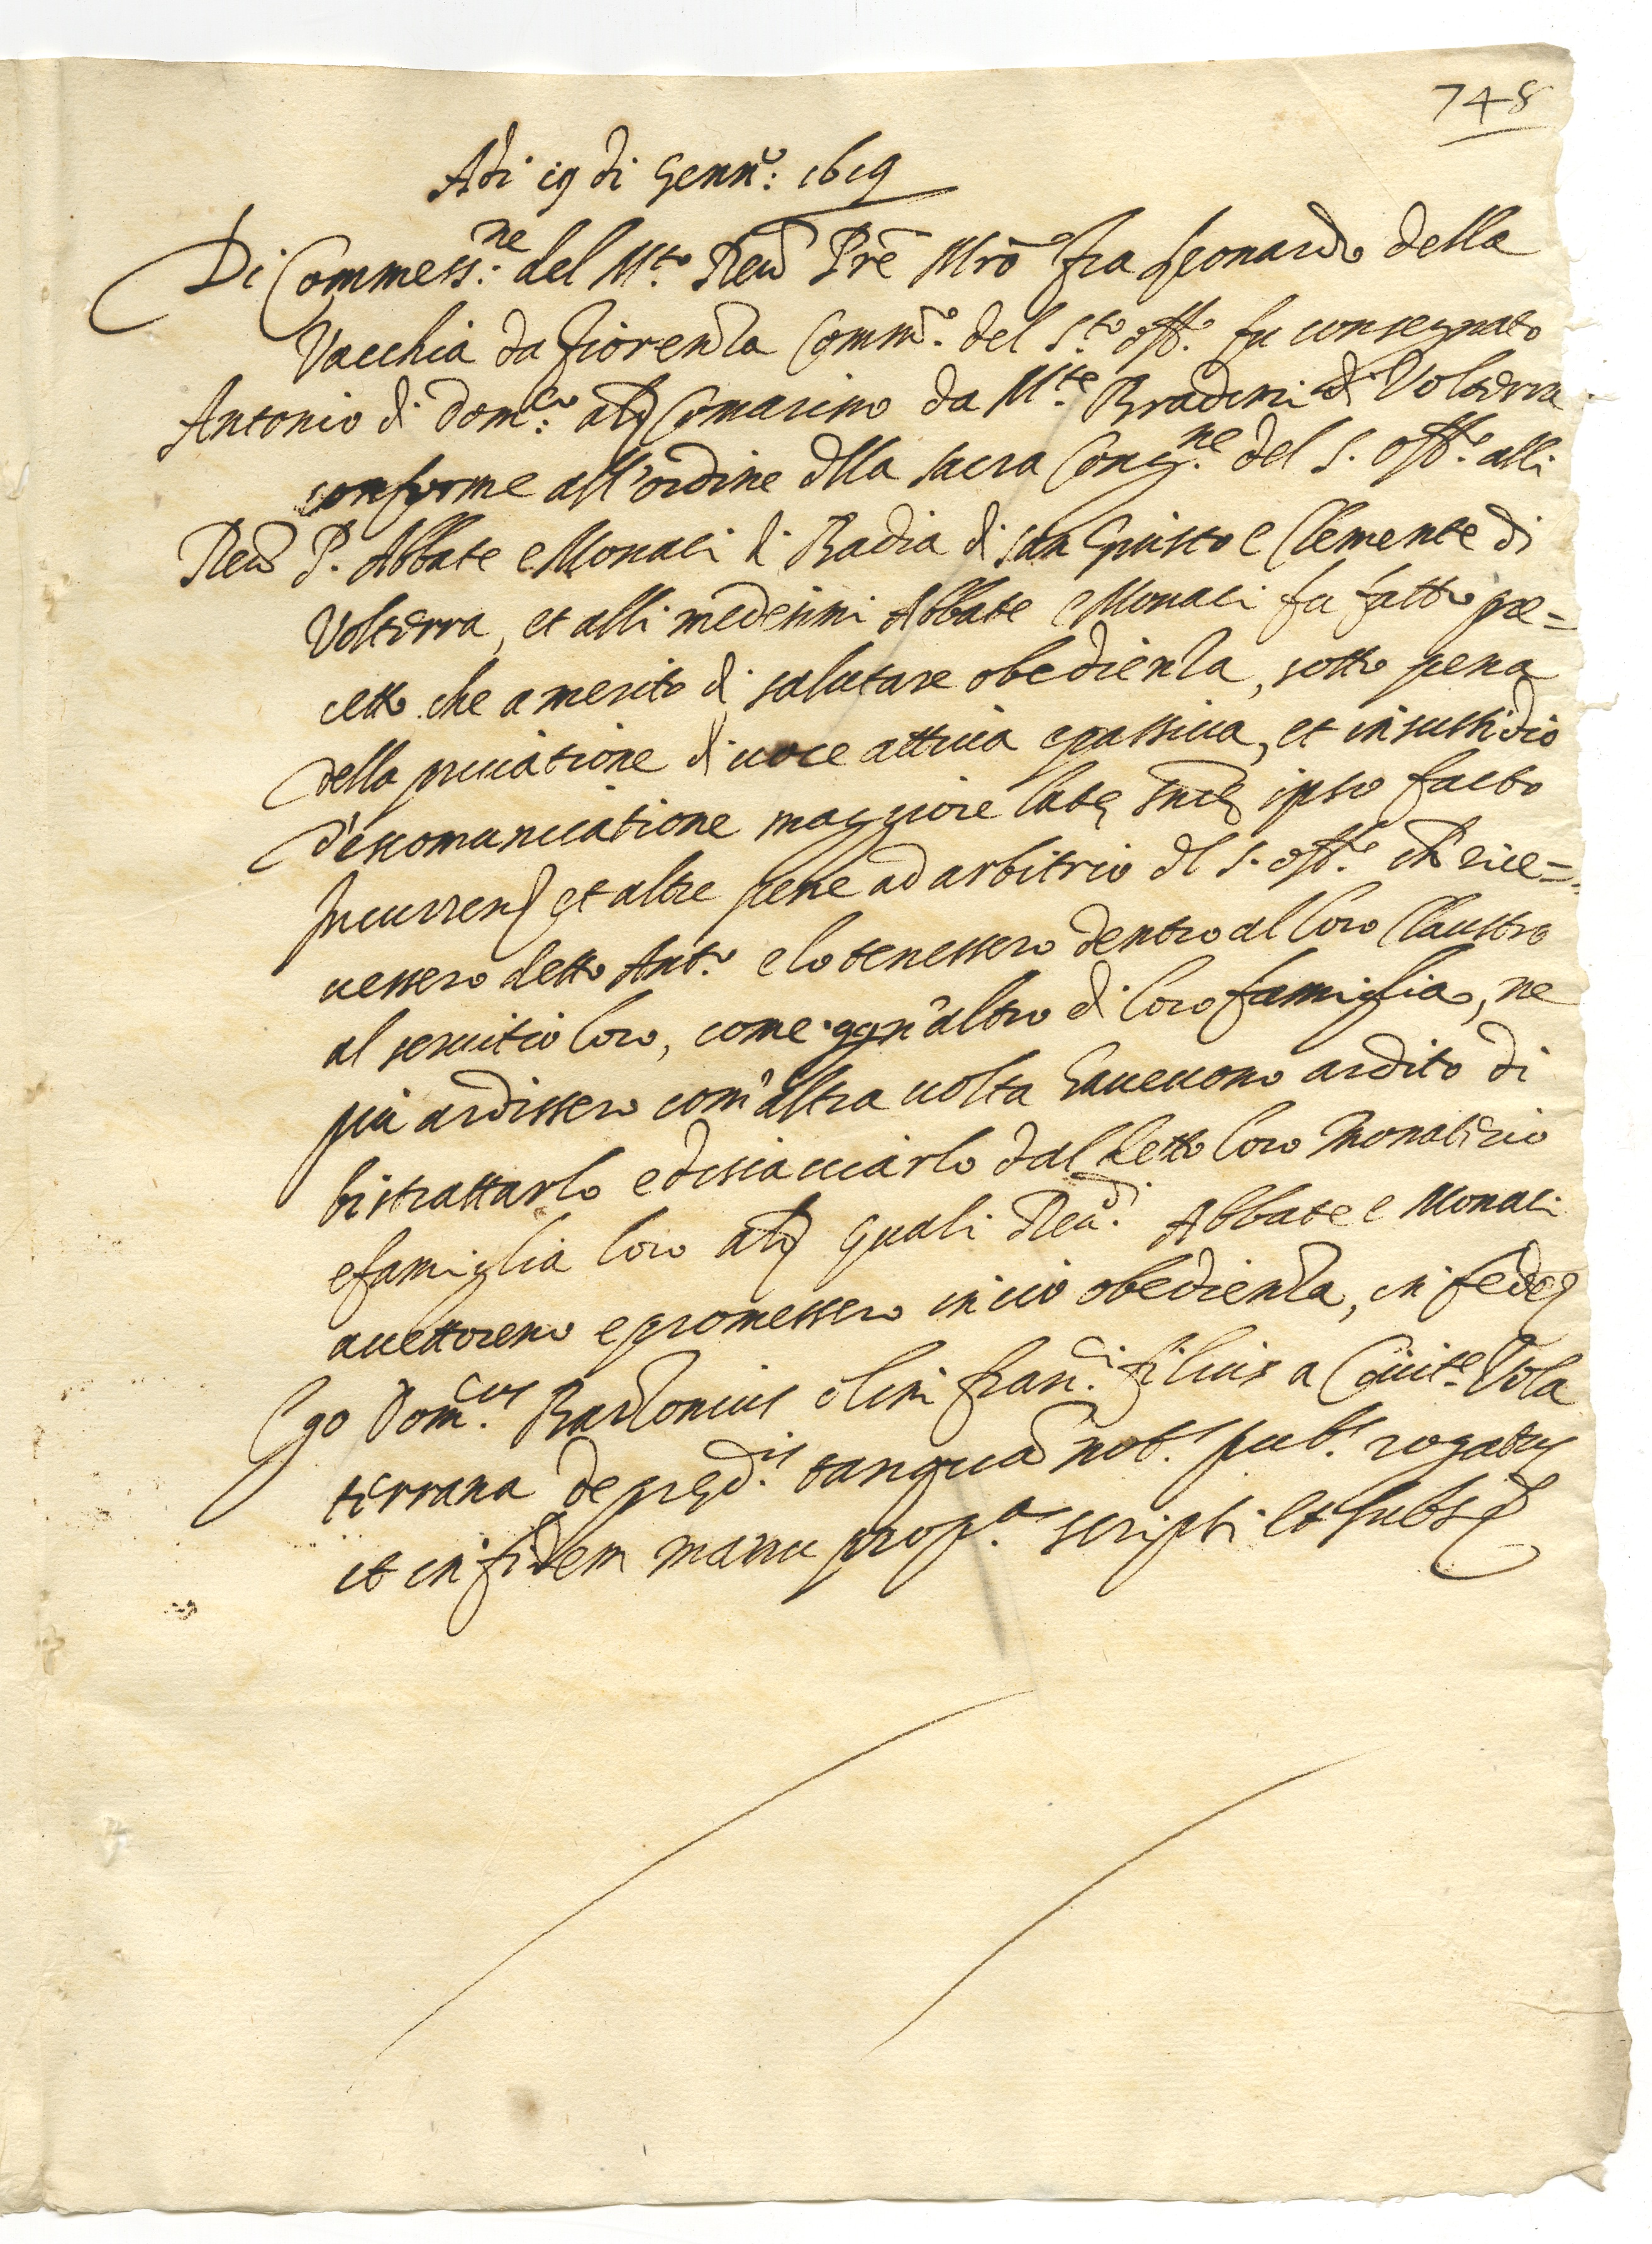 748
Adi 19 di Genn.o: 1619
Di Commess.ne del M.to Reu.do P̃re Mr̃o fra Leonardo della
Vacchia da fiorenza Comm.o del S.to off.o fu consegnato
Antonio di Dom.co: als Comarino da M.te Bradoni di Volterra
conforme all'ordine dlla sacra Cong.ne del S. off.o alli
Reu.di P. Abbate e Monaci di Badia di san Giusto e Clemente di
Volterra, et alli medesimi Abbate e Monaci fu fatto pre=
cetto che a merito di salutare obedienza, sotto pena
della priuatione di uoce attiua e passiua, et in sussidio
d'escomunicatione maggiore latę sn̄ę ipso facto
Incurren et altre pene ad arbitrio dl S. off.o ch̃ rice=
uessero detto Ant.o e lo tenessero dentro al loro Claustro
al seruitio loro, come ogn'altro di loro famiglia, ne
più ardissero com'altra uolta haueuono ardito di
bistrattarlo e discacciarlo dal detto loro Monasterio
e famiglia loro quali Reu.di Abbate e Monaci
accettoreno e promessero in ciò obedienza, in fede
Ego Dom.cus Barzonius olim fran.ci filius a Ciuit.e Vola
terrana de pręd.is tanquã not.s pub.s rogatus
et in fidem manu prop.a scripsi et subs